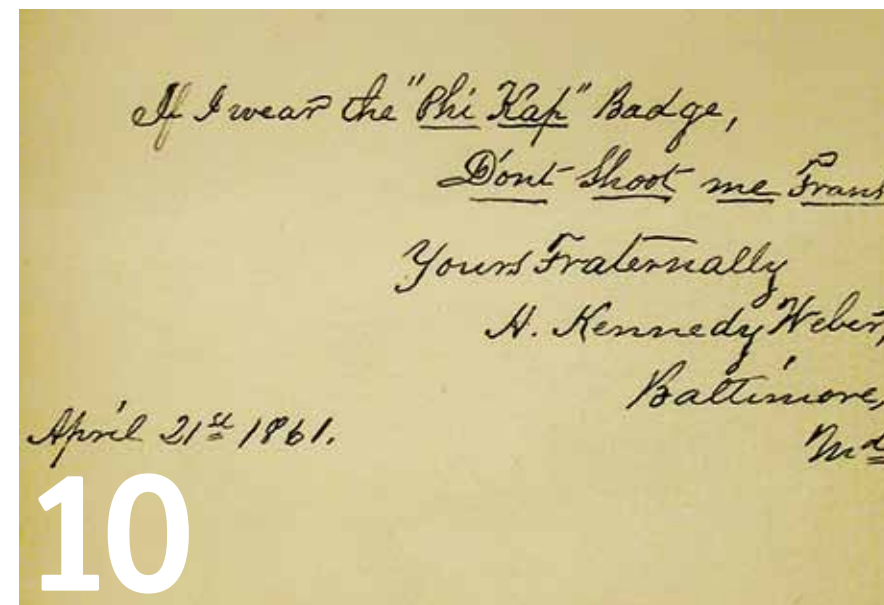 If I wear the "Phi Kap" Badge,
Dont Shoot me Frank
Yours Fraternally
H. Kennedy Weber,
Baltimore,
Md
April 21st 1861.
10